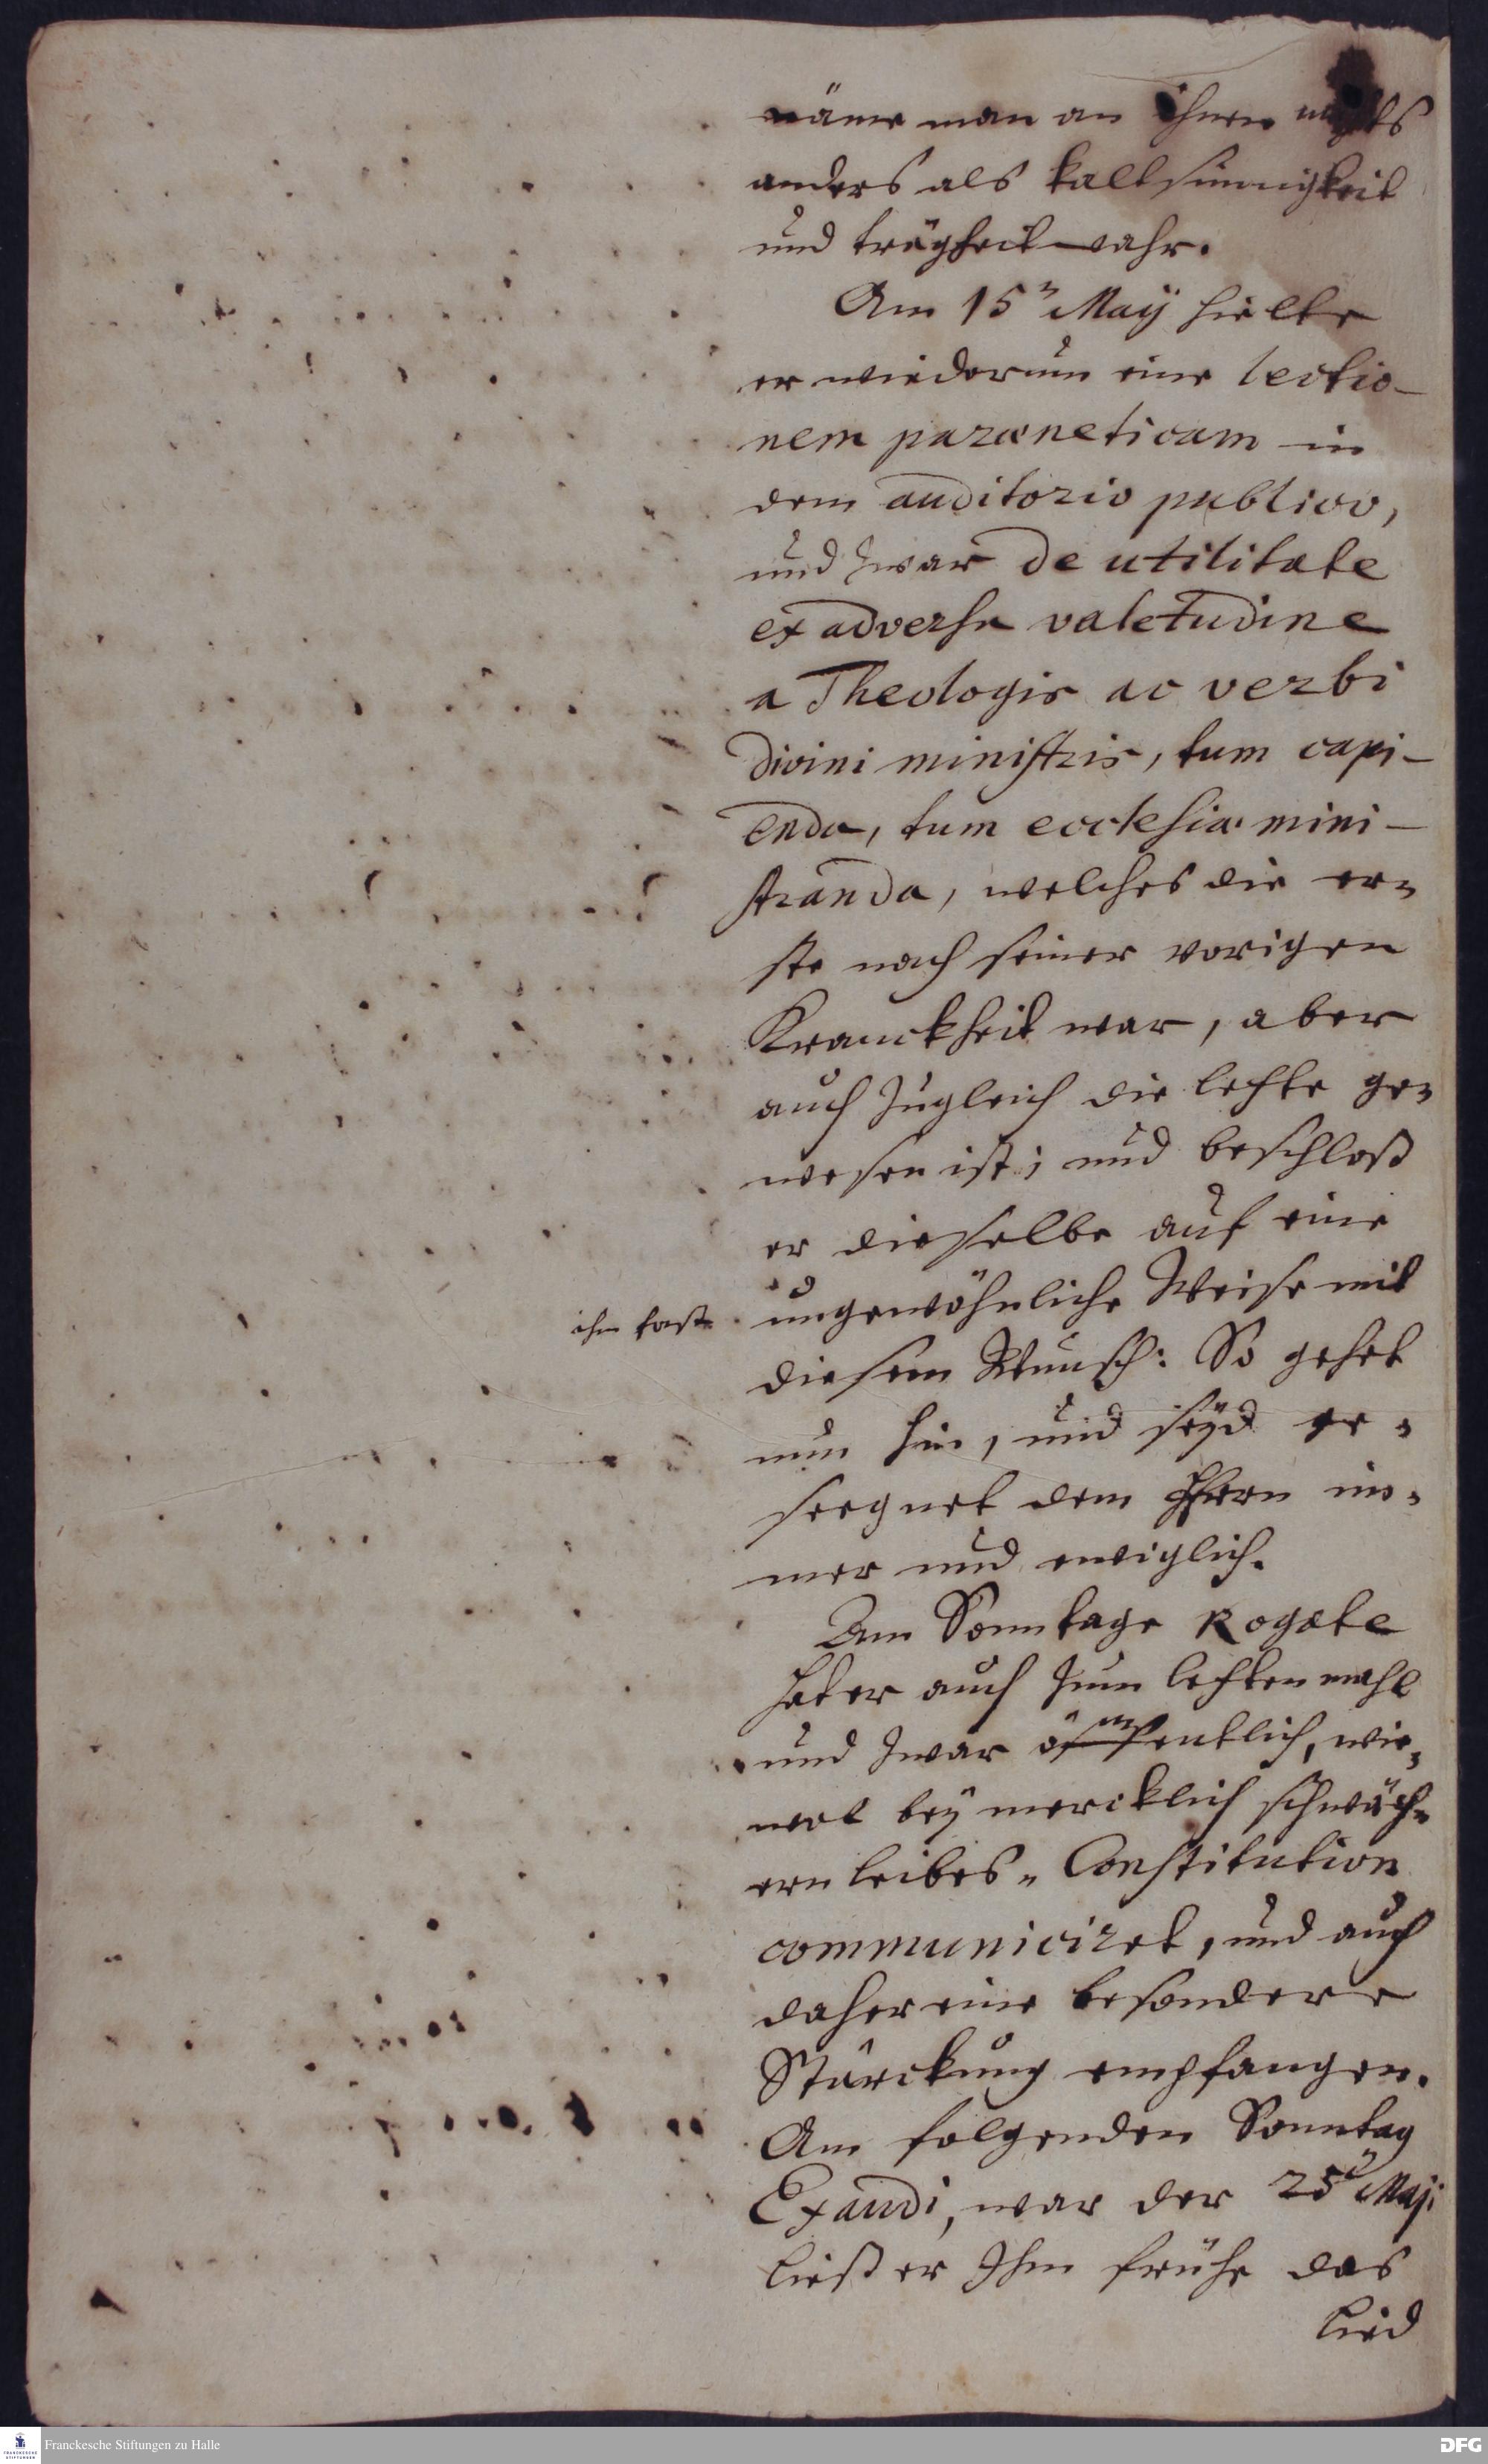 näme man an Ihnen nichts
anders als kaltsinnigkeit
und trägheit wahr.
Am 15n Maÿ hielte
er wiederum eine lectio-
nem paræneticam in
dem auditorio publico,
und zwar de utilitate
ex adversa valetudine
a Theologis ac verbi
divini ministris, tum capi-
enda, tum ecclesiæ mini-
stranda, welches die er-
ste nach seiner vorigen
Kranckheit war, aber
auch zugleich die letzte ge-
wesen ist; und beschloß
er dieselbe auf eine
ihm fast
ungewöhnliche Weise mit
diesem Wunsch: So gehet
nun hin, und seÿd ge-
seegnet dem HErrn im-
mer und ewiglich.
Am Sonntage Rogate
hat er auch zum letzten mahl
und zwar öffentlich, wie-
wol beÿ mercklich schwäch-
ern leibes-Constitution
communiciret, und auch
daher eine besondere
Stärckung empfangen.
Am folgenden Sonntag
Exaudi, war der 25n Maji
ließ er Ihm frühe das
Lied
Franckesche Stiftungen zu Halle
DFG